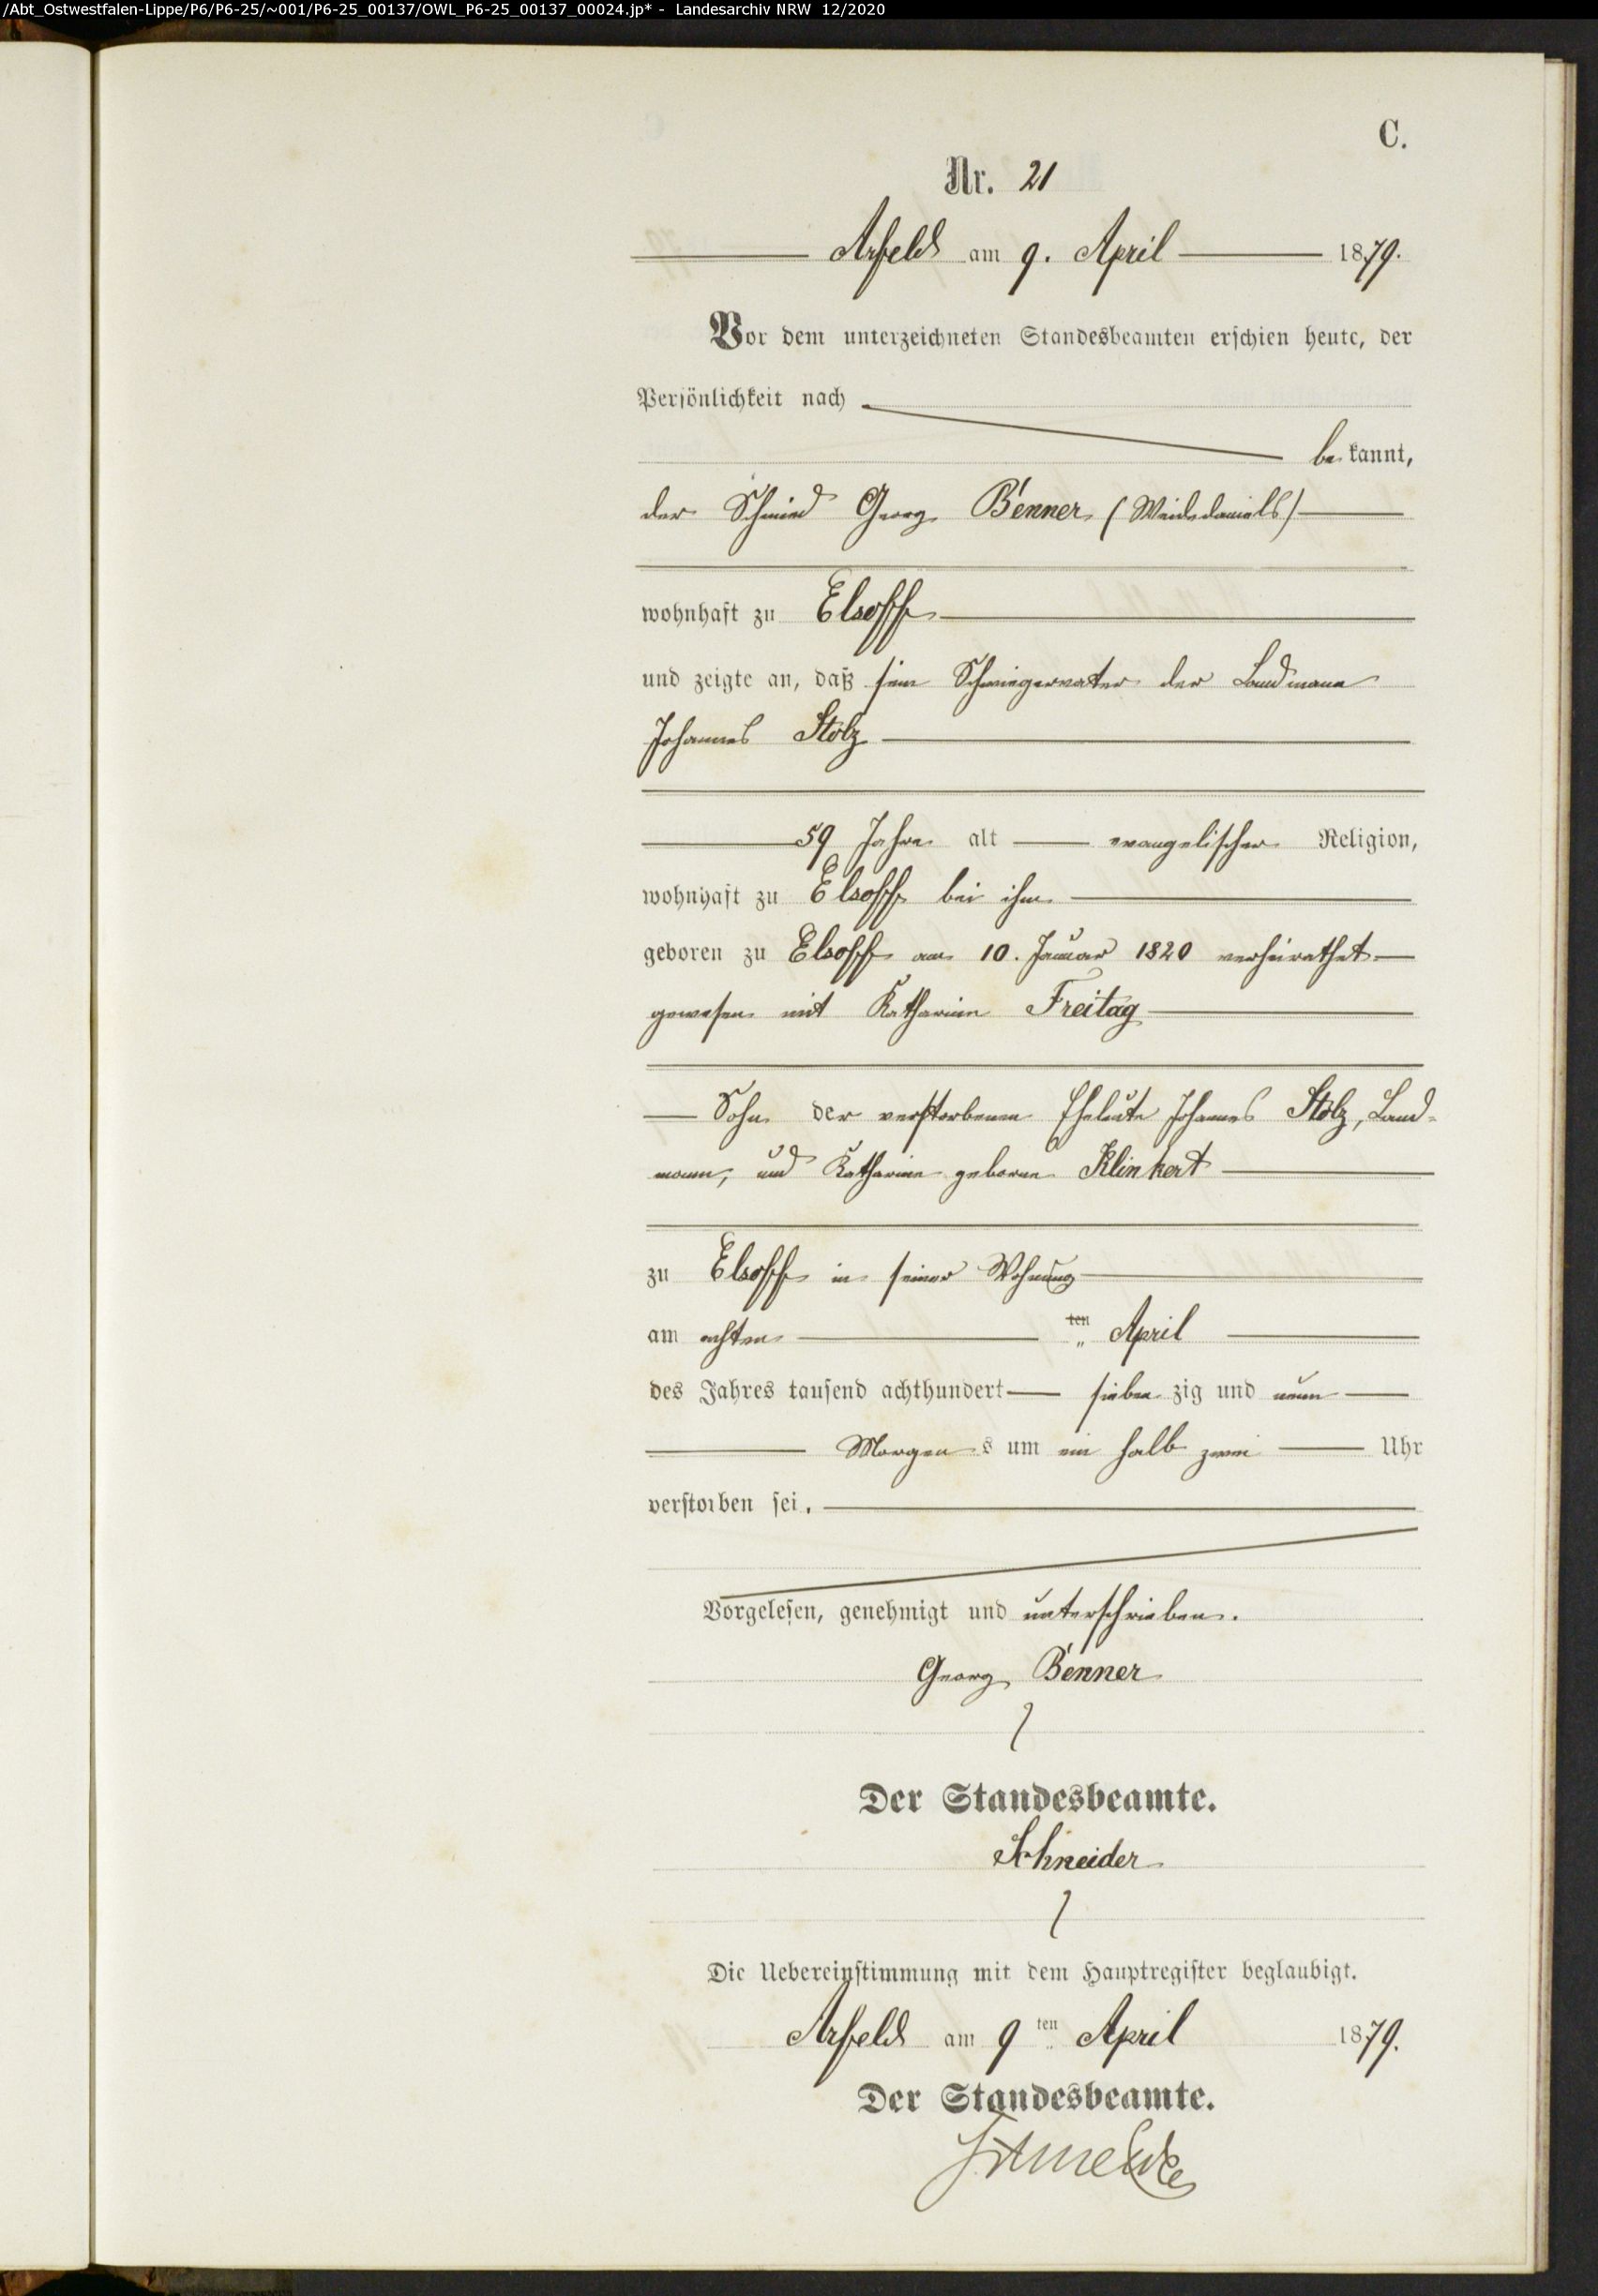 /Abt_Ostwestfalen-Lippe/P6/P6-25/~001/P6-25_00137/OWL_P6-25_00137_00024.jp* - Landesarchiv NRW 12/2020
C.
Nr. 21
Arfeld am 9. April 1879.
Vor dem unterzeichneten Standesbeamten erschien heute, der
Persönlichkeit nach
bekannt,
der Schmied Georg Benner (Weidedaniels)
wohnhaft zu Elsoff
und zeigte an, daß sein Schwiegervater der Landmann
Johannes Stolz
59 Jahre alt evangelischer Religion,
wohnhaft zu Elsoff bei ihm
geboren zu Elsoff am 10. Januar 1820 verheirathet
gewesen mit Katharine Freitag
Sohn der verstorbenen Eheleute Johannes Stolz, Land-
mann, und Katharine geborne Klinkert
zu Elsoff in seiner Wohnung
am achten ten April
des Jahres tausend achthundert siebenzig und neun
Morgens um ein halb zwei Uhr
verstorben sei.
Vorgelesen, genehmigt und unterschrieben.
Georg Benner
Der Standesbeamte.
Schneider
Die Uebereinstimmung mit dem Hauptregister beglaubigt.
Arfeld am 9ten April 1879.
Der Standesbeamte.
Schneider